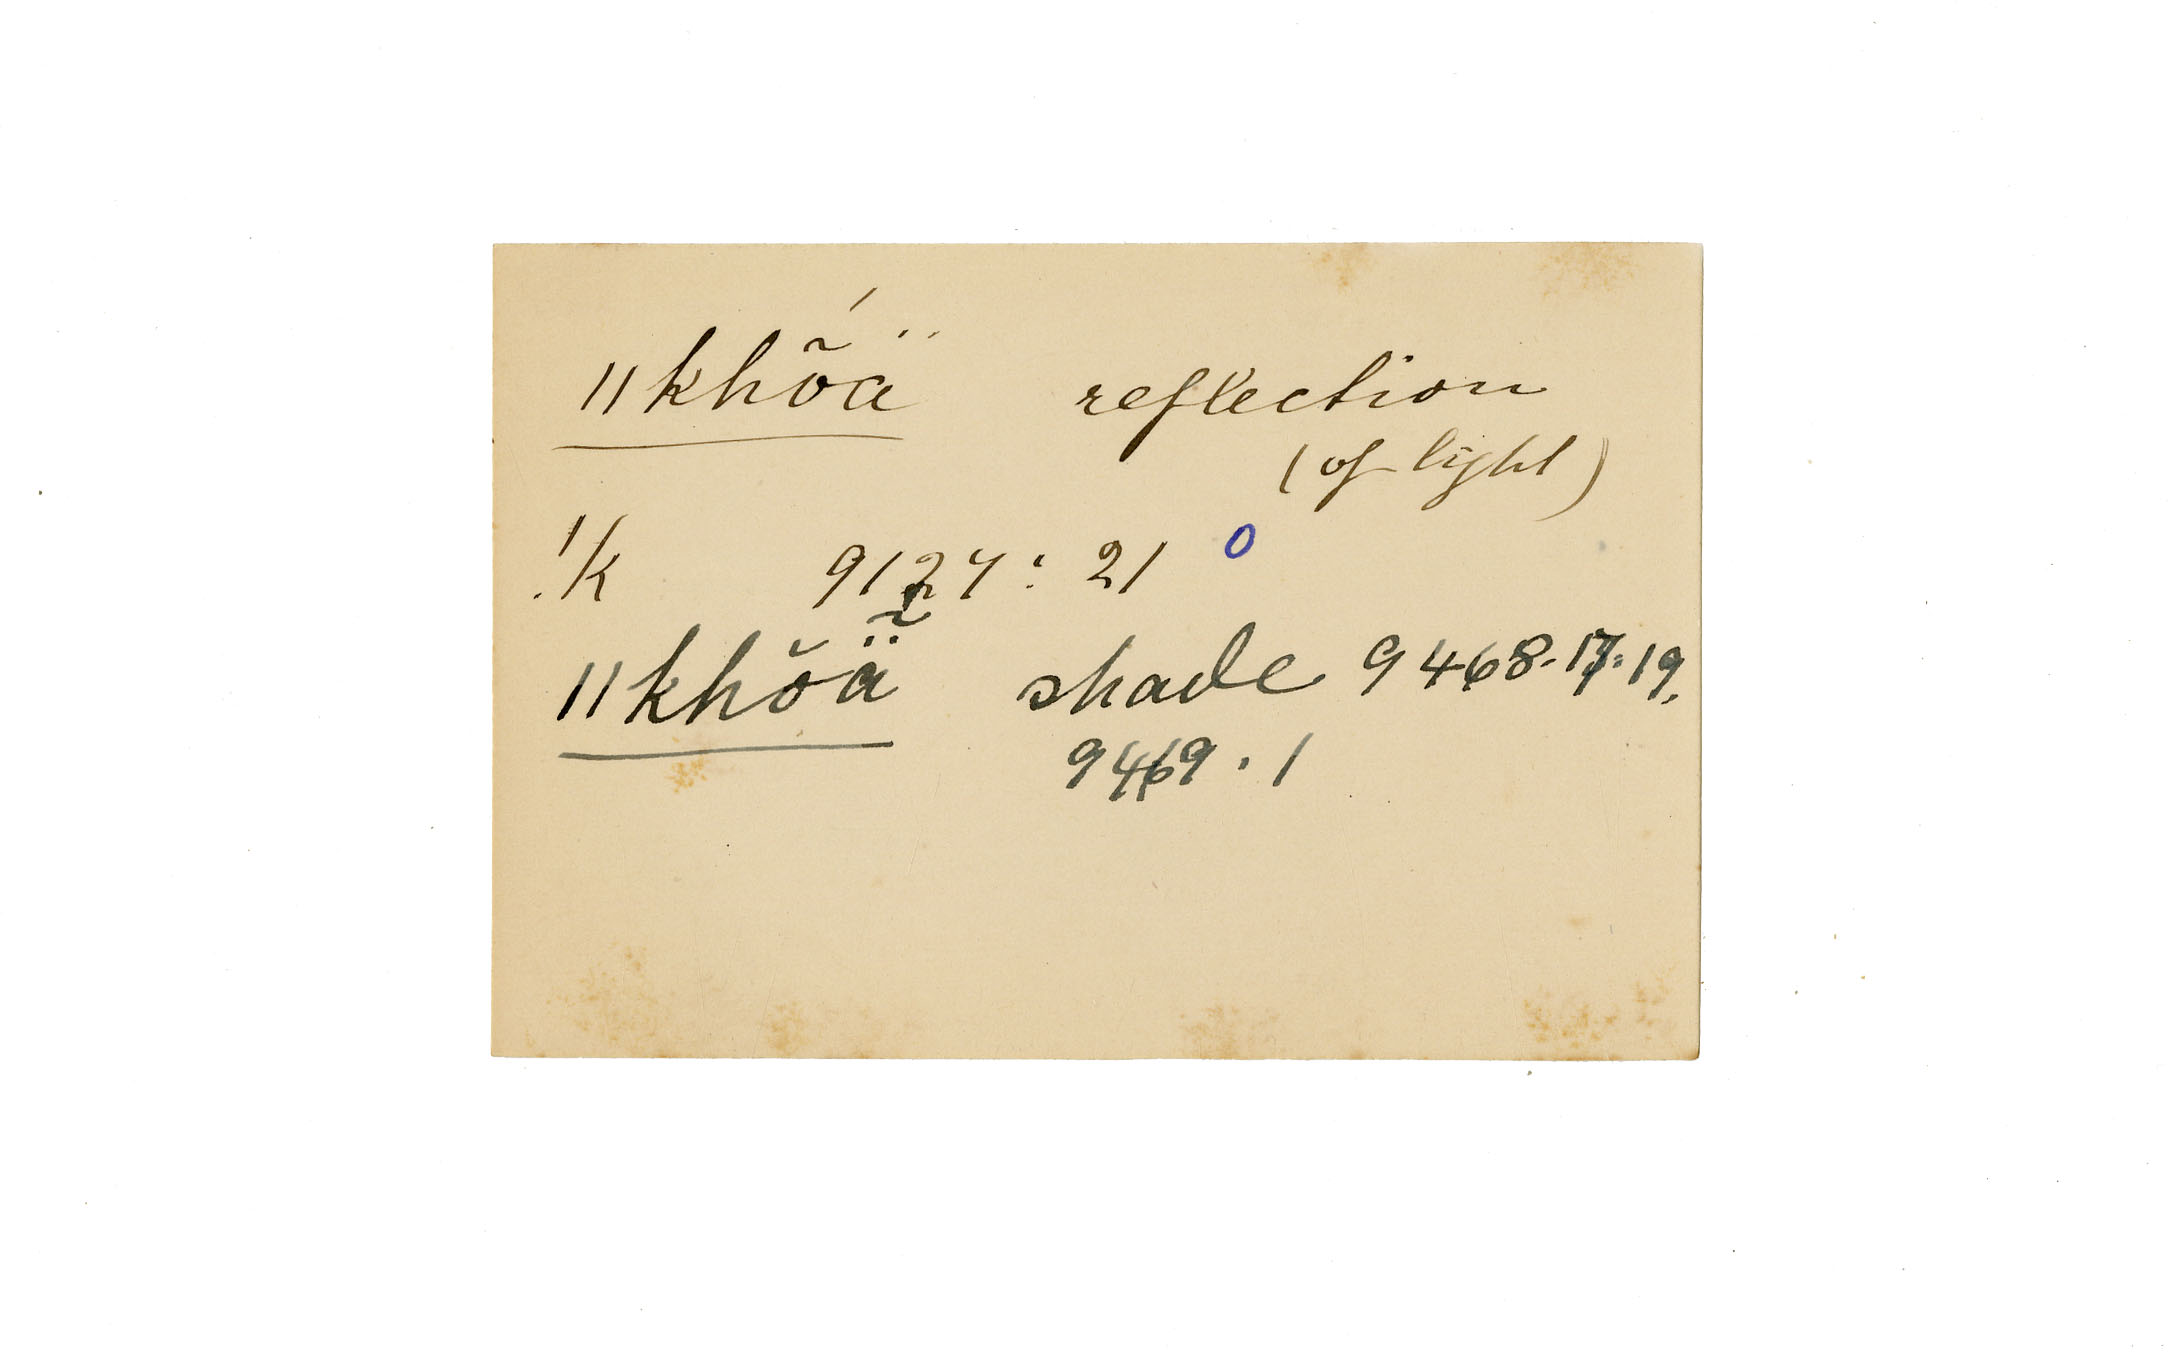 ǁkhṍä reflection
(of light)
!k 9127 : 21 0
ǁkhŏä̃ shade 9468. 17. 19.
9469 . 1